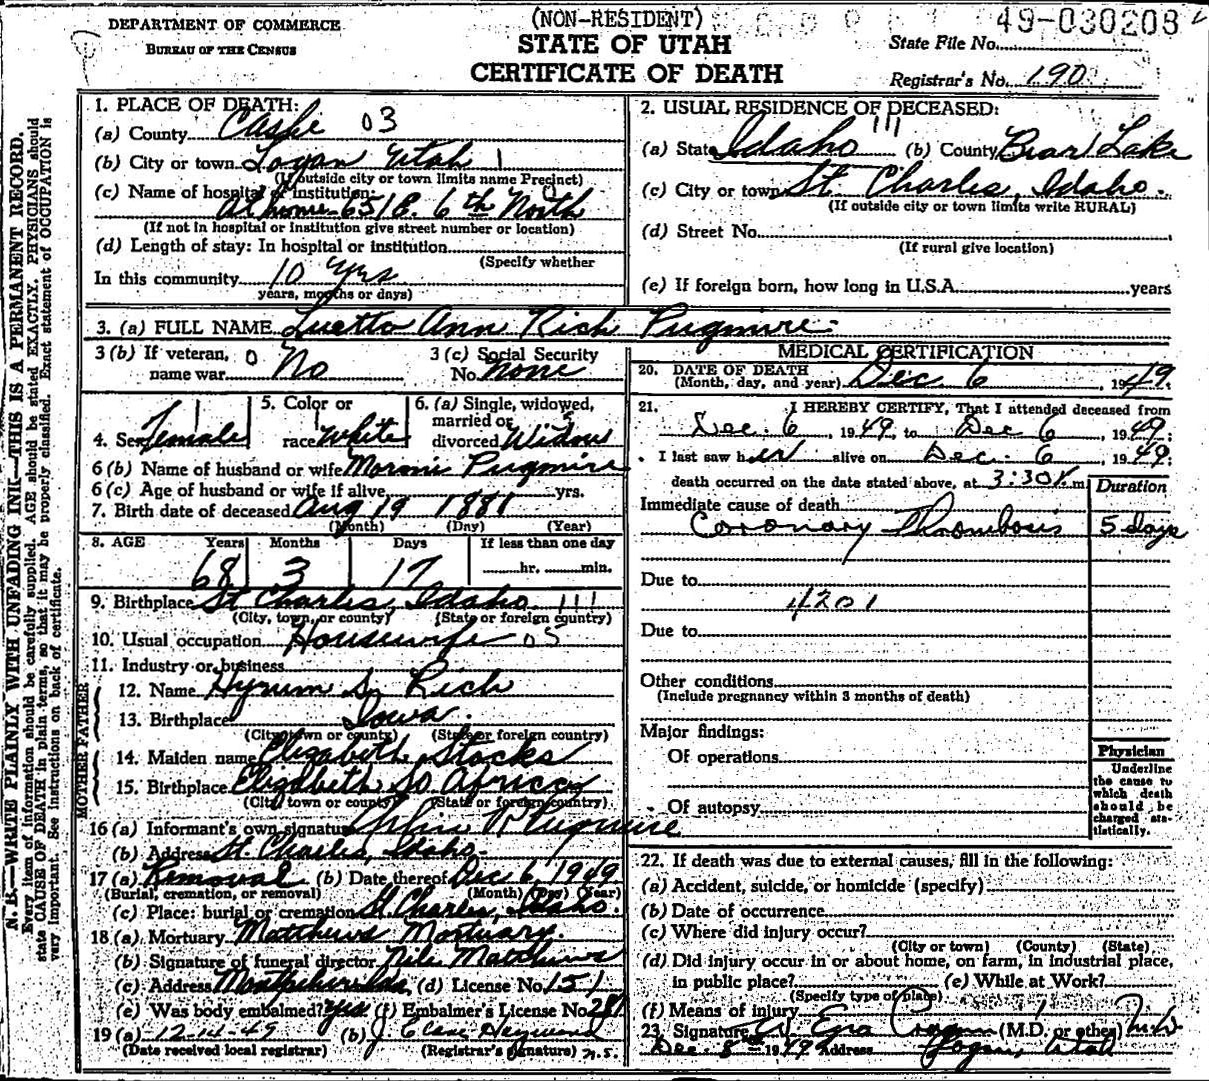 DEPARTMENT OF COMMERCE
BUREAU OF THE CENSUS
(NON-RESIDENT)
STATE OF UTAH
CERTIFICATE OF DEATH
49-030208
State File No.
Registrar's No. 190
N. B.—WRITE PLAINLY WITH UNFADING INK—THIS IS A PERMANENT RECORD.
Every item of information should be carefully supplied. AGE should be stated EXACTLY. PHYSICIANS should
state CAUSE OF DEATH in plain terms, so that it may be properly classified. Exact statement of OCCUPATION is
very important. See instructions on back of certificate.
1. PLACE OF DEATH:
(a) County Cashe 03
(b) City or town Logan Utah 1
(If outside city or town limits name Precinct)
(c) Name of hospital or institution:
At home 651 E. 6th North
(If not in hospital or institution give street number or location)
(d) Length of stay: In hospital or institution
(Specify whether
In this community 10 yrs
years, months or days)
2. USUAL RESIDENCE OF DECEASED:
(a) State Idaho 111 (b) County Bear Lake
(c) City or town St Charles, Idaho.
(If outside city or town limits write RURAL)
(d) Street No.
(If rural give location)
(e) If foreign born, how long in U.S.A. years
3. (a) FULL NAME Luetta Ann Rich Pugmire
3 (b) If veteran, 0
name war No
3 (c) Social Security
No. None
4. Sex Female
5. Color or
race White
6. (a) Single, widowed, 5
married or
divorced Widow
6 (b) Name of husband or wife Moroni Pugmire
6 (c) Age of husband or wife if alive yrs.
7. Birth date of deceased Aug 19 1881
(Month) (Day) (Year)
8. AGE Years Months Days If less than one day
68 3 17 hr. min.
9. Birthplace St Charles, Idaho. 111
(City, town, or county) (State or foreign country)
10. Usual occupation Housewife 05
11. Industry or business
FATHER
12. Name Hyrum S. Rich
13. Birthplace Iowa.
(City town or county) (State or foreign country)
MOTHER
14. Maiden name Elizabeth Stocks
15. Birthplace Elizabeth So Africa
(City town or county) (State or foreign country)
16 (a) Informant's own signature Pugmire
(b) Address St. Charles, Idaho.
17 (a) Removal (b) Date thereof Dec 6, 1949
(Burial, cremation, or removal) (Month) (Day) (Year)
(c) Place: burial or cremation St Charles, Idaho.
18 (a) Mortuary Matthews Mortuary.
(b) Signature of funeral director Matthews
(c) Address Montpelier Ida, (d) License No. 151
(e) Was body embalmed? Yes (f) Embalmer's License No. 281
19 (a) 12-14-49 (b)
(Date received local registrar) (Registrar's signature) n.s.
MEDICAL CERTIFICATION
20. DATE OF DEATH
(Month, day, and year) Dec. 6, 1949.
21. I HEREBY CERTIFY, That I attended deceased from
Dec. 6, 1949, to Dec 6, 1949.
I last saw her alive on Dec. 6, 1949.
death occurred on the date stated above, at 3:30 m
Duration
Immediate cause of death
Coronary Thrombosis 5 days
Due to
4201
Due to
Other conditions
(Include pregnancy within 3 months of death)
Major findings:
Of operations
Of autopsy
Physician
Underline
the cause to
which death
should be
charged sta-
tistically.
22. If death was due to external causes, fill in the following:
(a) Accident, suicide, or homicide (specify)
(b) Date of occurrence
(c) Where did injury occur?
(City or town) (County) (State)
(d) Did injury occur in or about home, on farm, in industrial place,
in public place? (e) While at Work?
(Specify type of place)
(f) Means of injury
23. Signature W. Ezra Cragun (M.D. or other) M.D.
Dec. 8th 1949 Address Logan, Utah